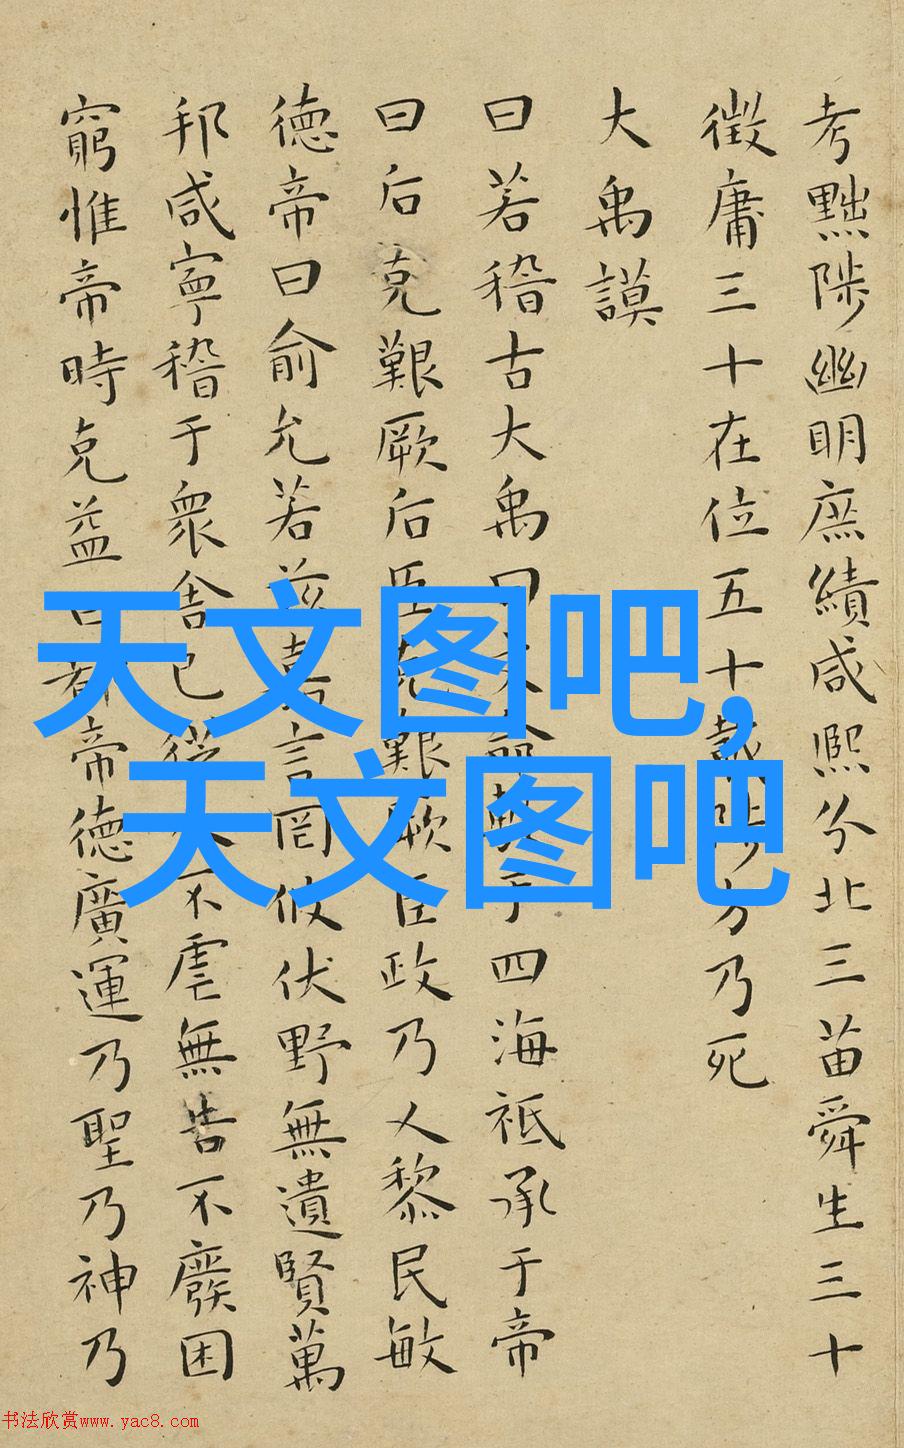 考黜陟幽明庶績咸熙分北三苗舜生三十
徵庸三十在位五十載陟方乃死
大禹謨
曰若稽古大禹曰文命敷于四海祗承于帝
曰后克艱厥后臣克艱厥臣政乃乂黎民敏
德帝曰俞允若茲嘉言罔攸伏野無遺賢萬
邦咸寧稽于衆舍己從人不虐無告不廢困
窮惟帝時克益曰都帝德廣運乃聖乃神乃
天文图吧,
天文图吧
书法欣赏www.yac8.com